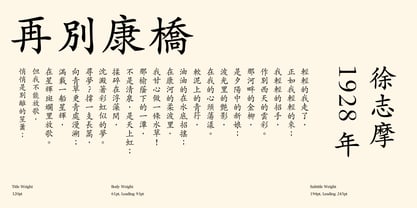 再別康橋
徐志摩
1928年
輕輕的我走了,
正如我輕輕的來;
我輕輕的招手,
作別西天的雲彩。
那河畔的金柳,
是夕陽中的新娘;
波光里的艷影,
在我的心頭蕩漾。
軟泥上的青荇,
油油的在水底招搖;
在康河的柔波里,
我甘心做一條水草!
那榆蔭下的一潭,
不是清泉,是天上虹;
揉碎在浮藻間,
沈澱著彩虹似的夢。
尋夢?撐一支長篙,
向青草更青處漫溯;
滿載一船星輝,
在星輝斑斕里放歌。
但我不能放歌,
悄悄是別離的笙簫;
Title Weight
120pt
Body Weight
61pt, Leading 93pt
Subtitle Weight
194pt, Leading 243pt